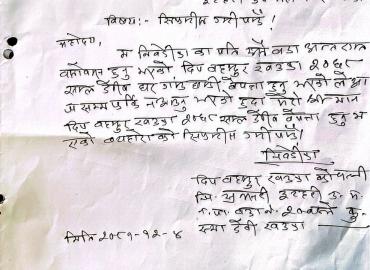 विषय:- सिफारीस गरी पाउँ।
महोदय,
म निवेदीका का पति यसै वडा अन्तरगत
बसोबास हुनु भएको, दिप बहादुर खड्का २०५८
साल देखि घर गाउ बाट बेपत्ता हुनु भएको ले आ
ज सम्म फर्कि नआउनु भएको हुदा मेरो श्री मान
दिप बहादुर खड्का २०५८ साल देखि बेपत्ता हुनु भ
एको व्यहोरा को सिफारीस गरी पाउँ।
निवेदीका
दिप बहादुर खड्का को पत्नी
इटहरी उ. म.
न. पा. वडा नं. २० बस्ने
देवी खड्का
मिति २०८१-१२-४